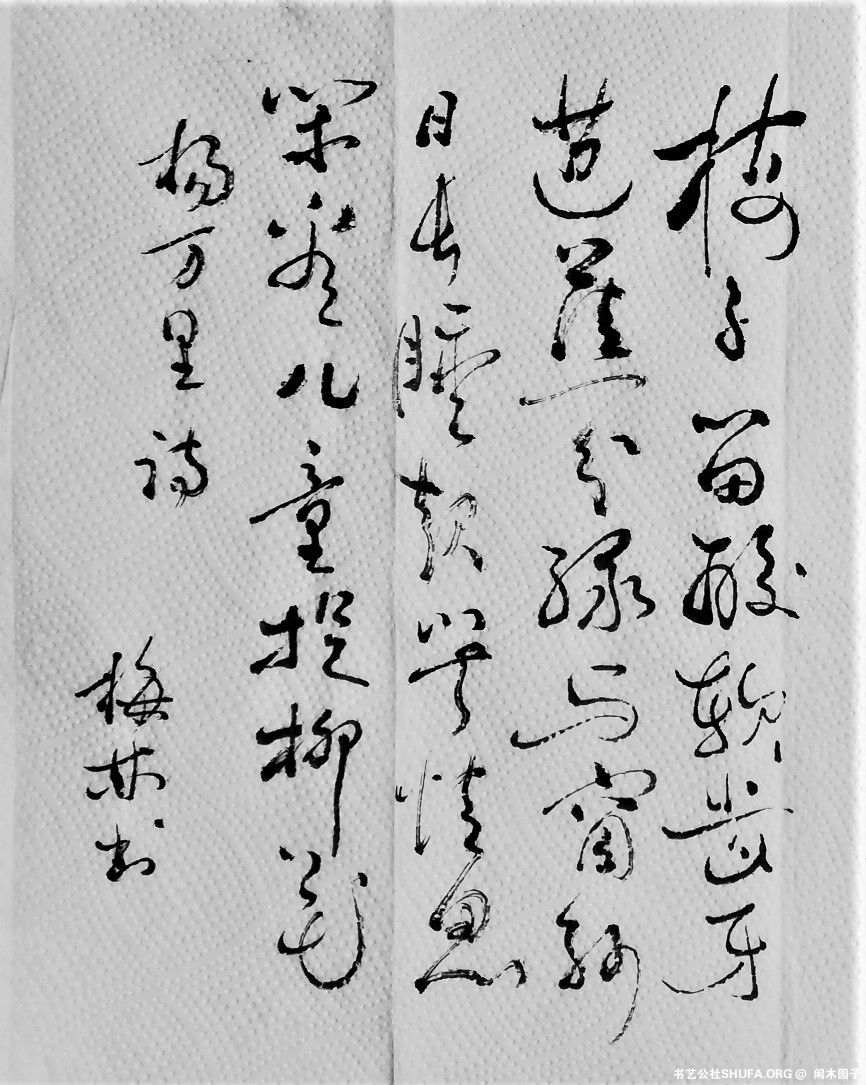 梅子留酸软齿牙
芭蕉分绿与窗纱
日长睡起無情思
闲看儿童捉柳花
杨万里诗
梅林书
书艺公社SHUFA.ORG @ 闲木园子